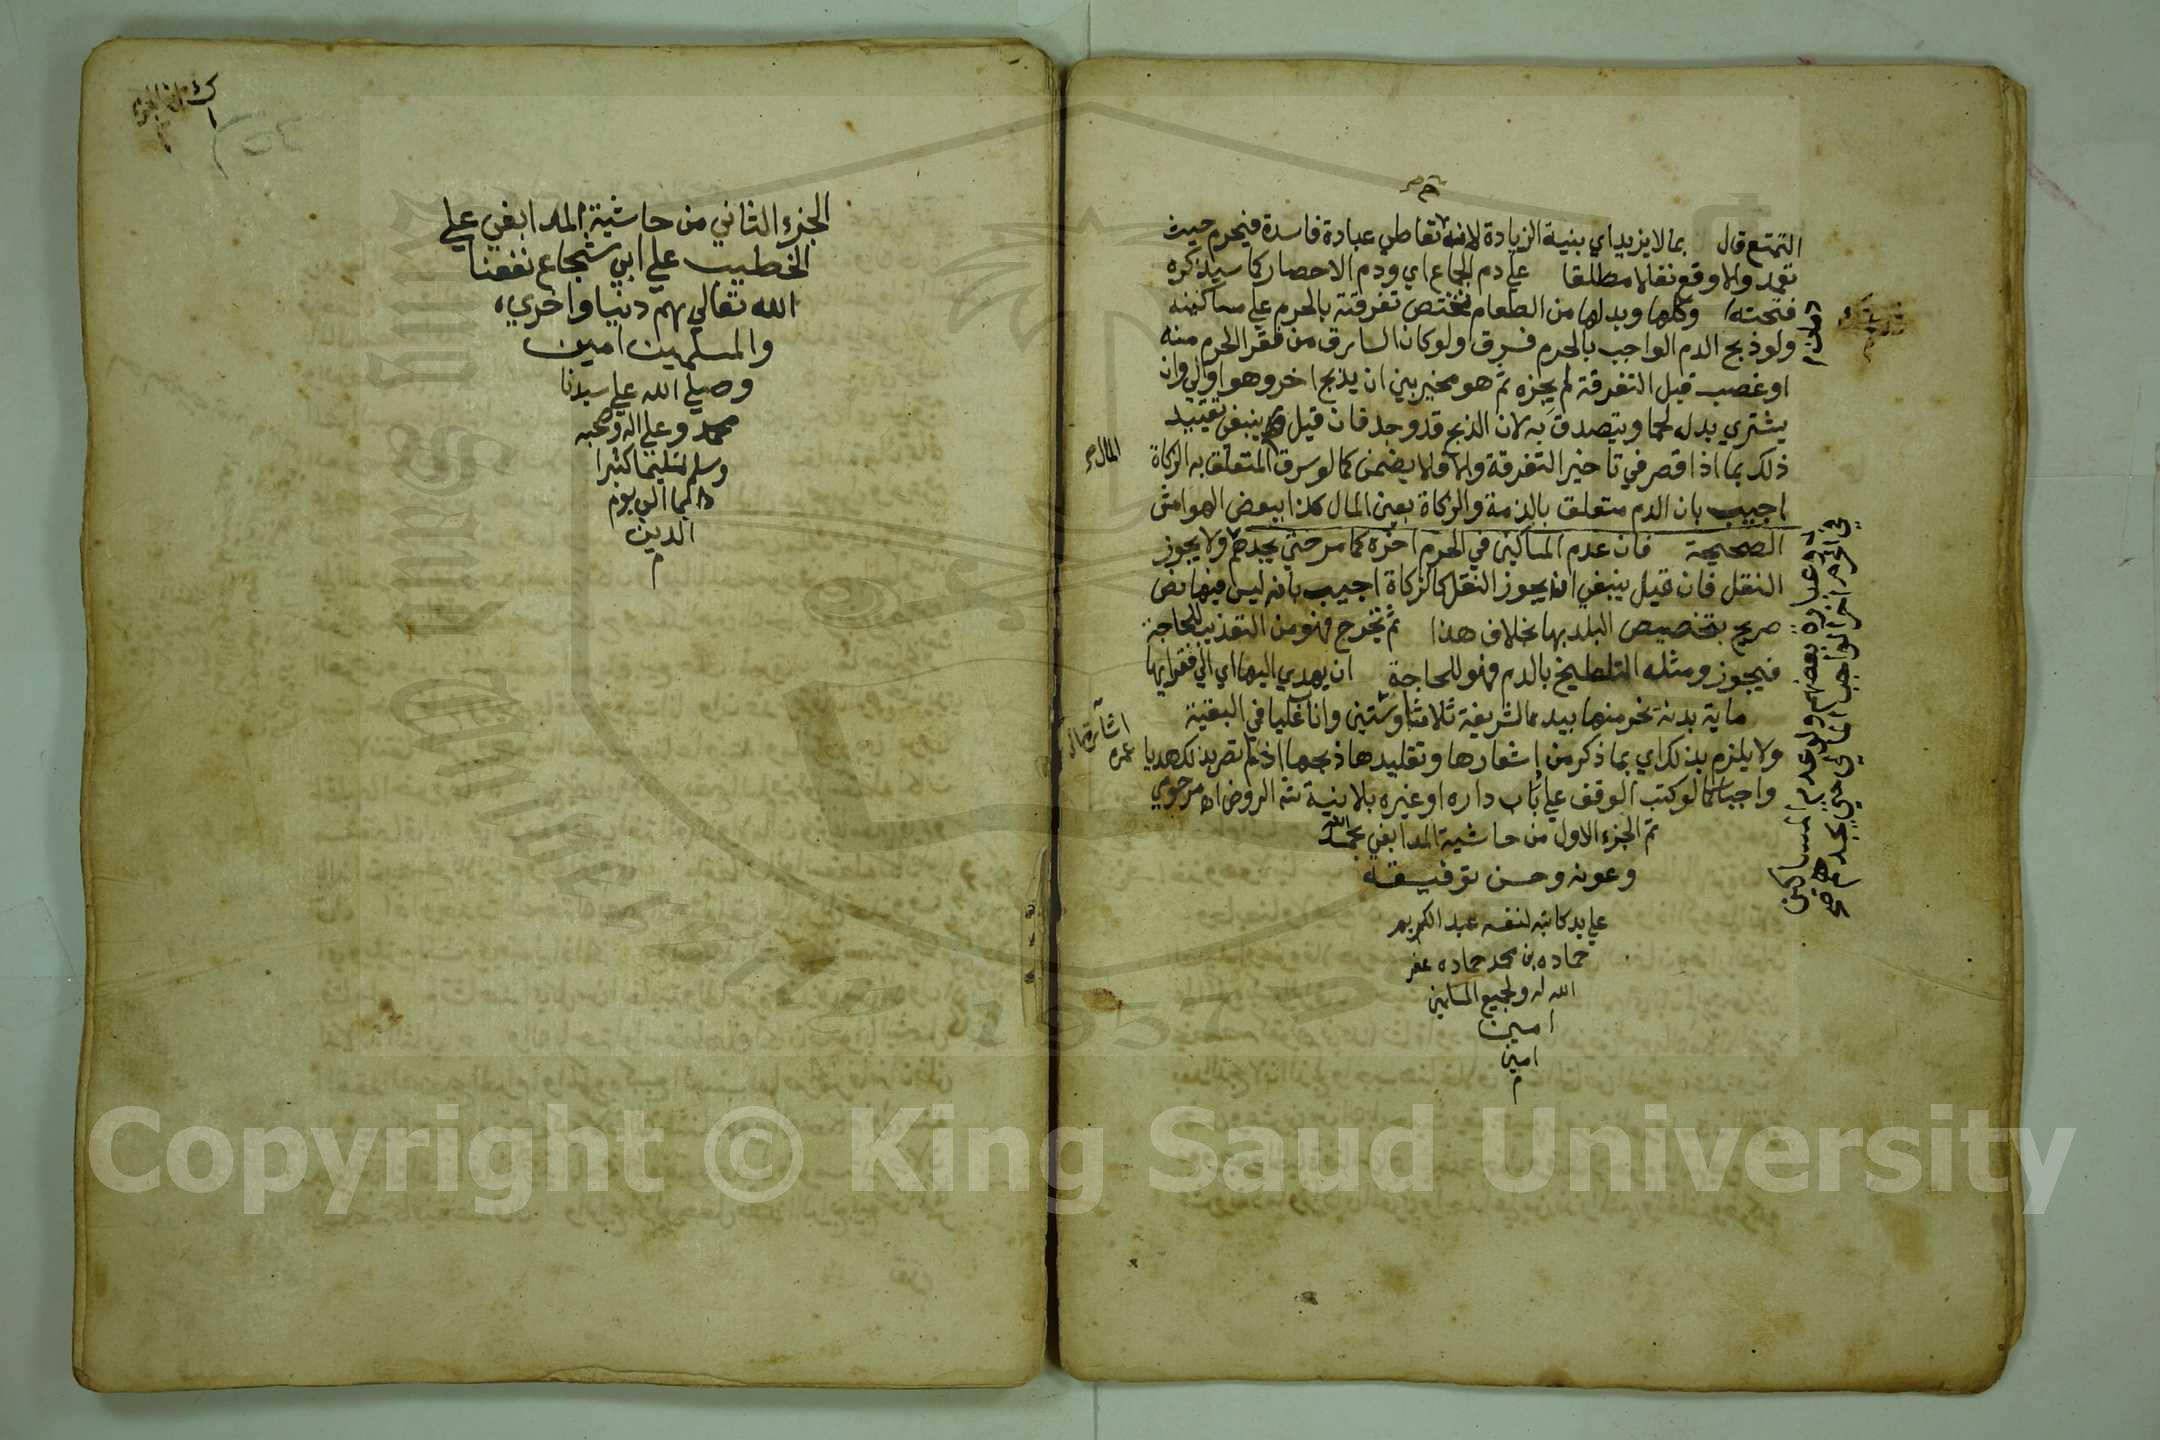 التمتع قال بما لا يزيد اي بنية الزيادة لانه تعاطي عبادة فاسدة فيحرم حيث
تعمد والا وقع نفلا مطلقا على دم الجماع اي ودم الاحصار كما سيذكره
وكلها وبدلها من الطعام تختص تفرقته بالحرم على مساكينه
ولو ذبح الدم الواجب بالحرم فسرق اولو كان السارق من فقرا الحرم منه
او غصب قبل التفرقة لم يجزه ثم هو مخير بين ان يذبح اخر وهو اولى وان
يشتري بدله لحما ويتصدق به لان الذبح قد وجد فان قيل ينبغي تقييد
ذلك بما اذا قصر في تاخير التفرقة والا فلا يضمن كما لو سرق المتعلق به الزكاة
المال
اجيب بان الدم متعلق بالذمة والزكاة بعين المال كذا ببعض الهوامش
الصحيحة فان عدم المساكين في الحرم اخره كما مر حتى يجدهم ولا يجوز
النقل فان قيل ينبغي ان يجوز النقل كالزكاة اجيب بانه ليس فيها نص
صريح بتخصيص البلد بها بخلاف هذا ثم يخرج فهو من التعذيب للحاجة
فيجوز ومثله التلطيخ بالدم فهو للحاجة ان يهدي اليها اي الى فقرايها
ماية بدنة نحر منها بيده الشريفة ثلاثا وستين واناب عليا في البقية
ولا يلزم بذلك اي بما ذكر من اشعارها وتقليدها ذبحها اذ لم تصر بذلك هديا
واجبا كما لو كتب الوقف على باب داره او غيره بلا نية شه الروض اه مرحومي
تم الجزء الاول من حاشية المدابغي بحمد الله
وعونه وحسن توفيقه
على يد كاتبه لنفسه عبد الكريم
حماده بن محمد حماده غفر
الله له ولجميع المسلمين
امين
امين
م
عبارة بعضهم ولو عدم المساكين
في الحرم اخر الواجب المالي حتى يجدهم
الجزء الثاني من حاشية المدابغي علي
الخطيب علي ابي شجاع نفعنا
الله تعالى بهم دنيا واخرى
والمسلمين امين
وصلى الله على سيدنا
محمد وعلى اله وصحبه
وسلم تسليما كثيرا
دايما الى يوم
الدين
م
Copyright © King Saud University
1957